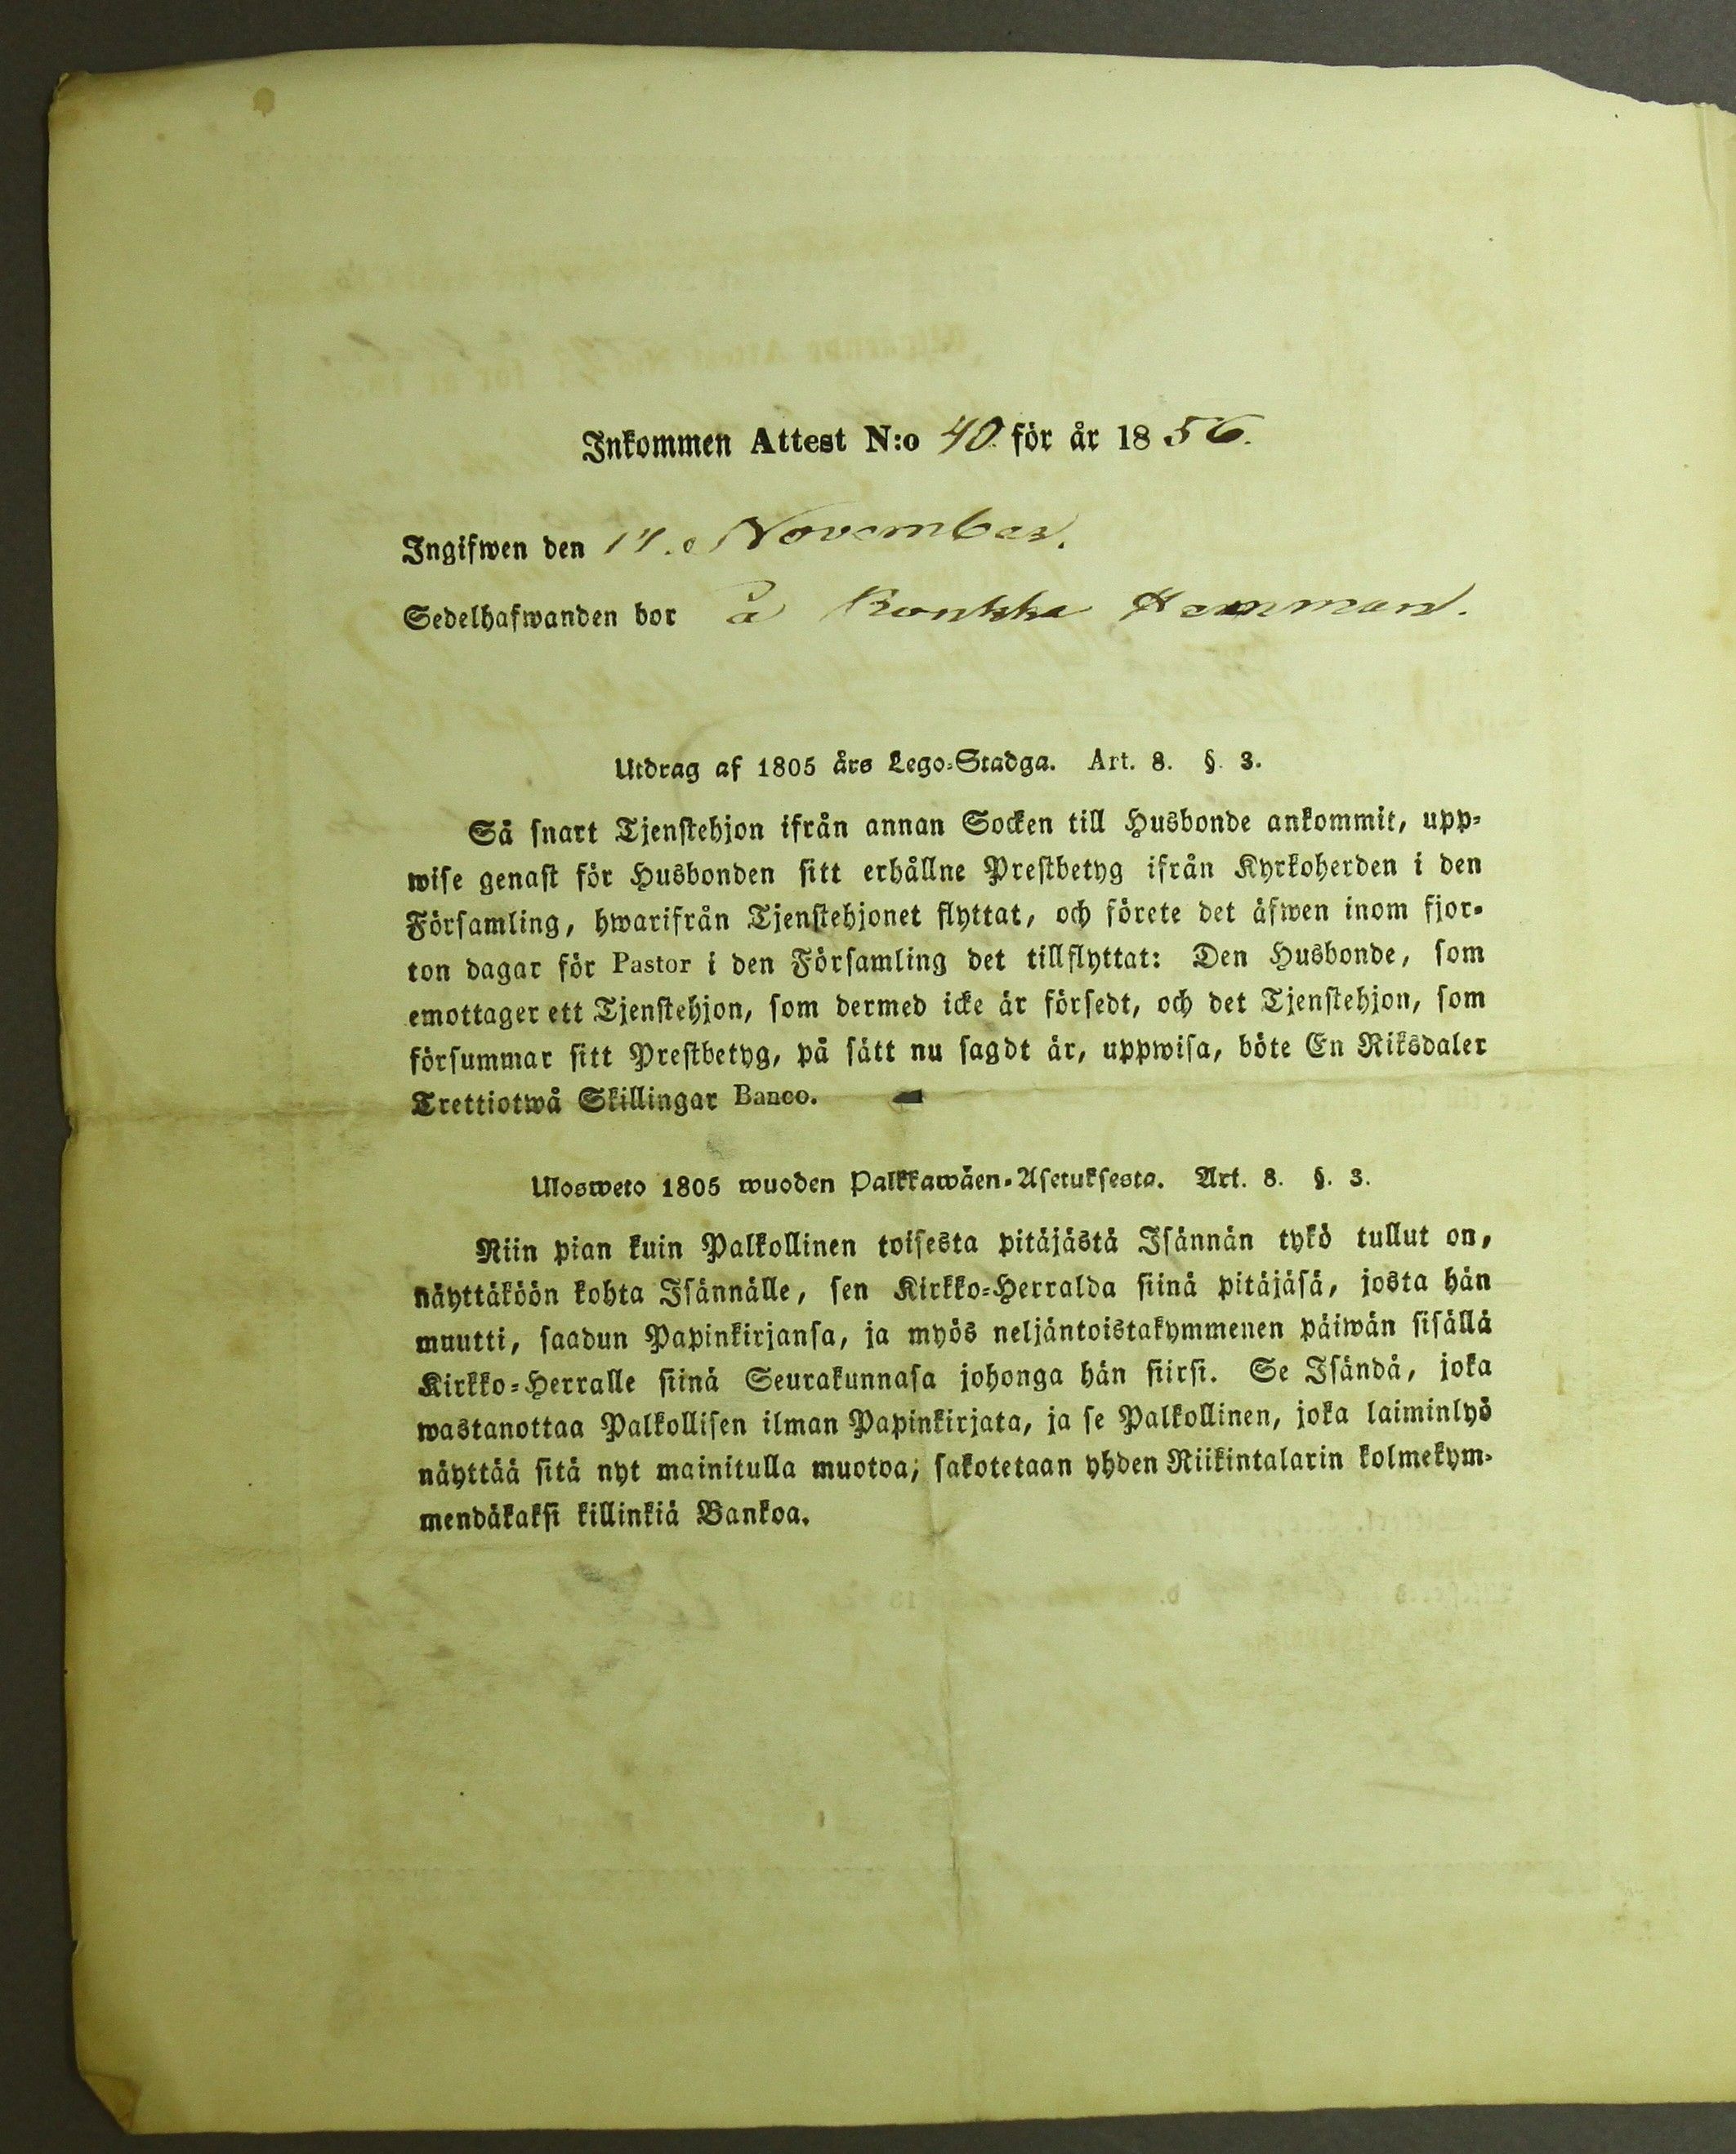 Inkommen Attest N:o 40. för år 1856.
Ingifwen den 14. November.
Sedelhafwanden bor å Ronkka Hemman.
Utdrag af 1805 års Lego-Stadga. Art. 8. §. 3.
Så snart Tjenstehjon ifrån annan Socken till Husbonde ankommit, upp-
wise genast för Husbonden sitt erhållne Prestbetyg ifrån Kyrkoherden i den
Församling, hwarifrån Tjenstehjonet flyttat, och förete det äfwen inom fjor-
ton dagar för Pastor i den Församling det tillflyttat: Den Husbonde, som
emottager ett Tjenstehjon, som dermed icke är försedt, och det Tjenstehjon, som
försummar sitt Prestbetyg, på sätt nu sagdt är, uppwisa, böte En Riksdaler
Trettiotwå Skillingar Banco.
Ulosweto 1805 wuoden Palkkawäen-Asetuksesta. Art. 8. §. 3.
Niin pian kuin Palkollinen toisesta pitäjästä Isännän tykö tullut on,
näyttäköön kohta Isännälle, sen Kirkko-Herralda siinä pitäjäsä, josta hän
muutti, saadun Papinkirjansa, ja myös neljäntoistakymmenen päiwän sisällä
Kirkko-Herralle siinä Seurakunnasa johonga hän siirsi. Se Isändä, joka
wastanottaa Palkollisen ilman Papinkirjata, ja se Palkollinen, joka laiminlyö
näyttää sitä nyt mainitulla muotoa, sakotetaan yhden Riikintalarin kolmekym-
mendäkaksi killinkiä Bankoa.